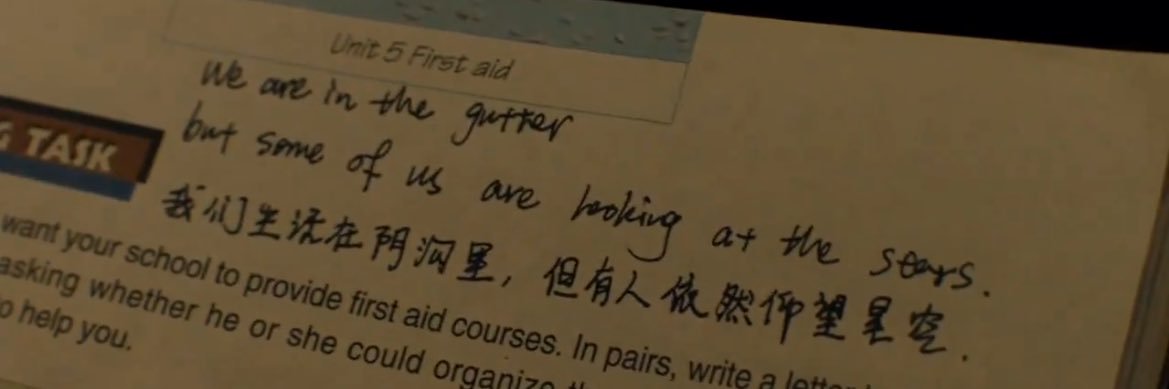 Unit 5 First aid
We are in the gutter
but some of us are looking at the stars.
G TASK
我们生活在阴沟里，但有人依然仰望星空.
want your school to provide first aid courses. In pairs, write a letter
asking whether he or she could organize th
o help you.